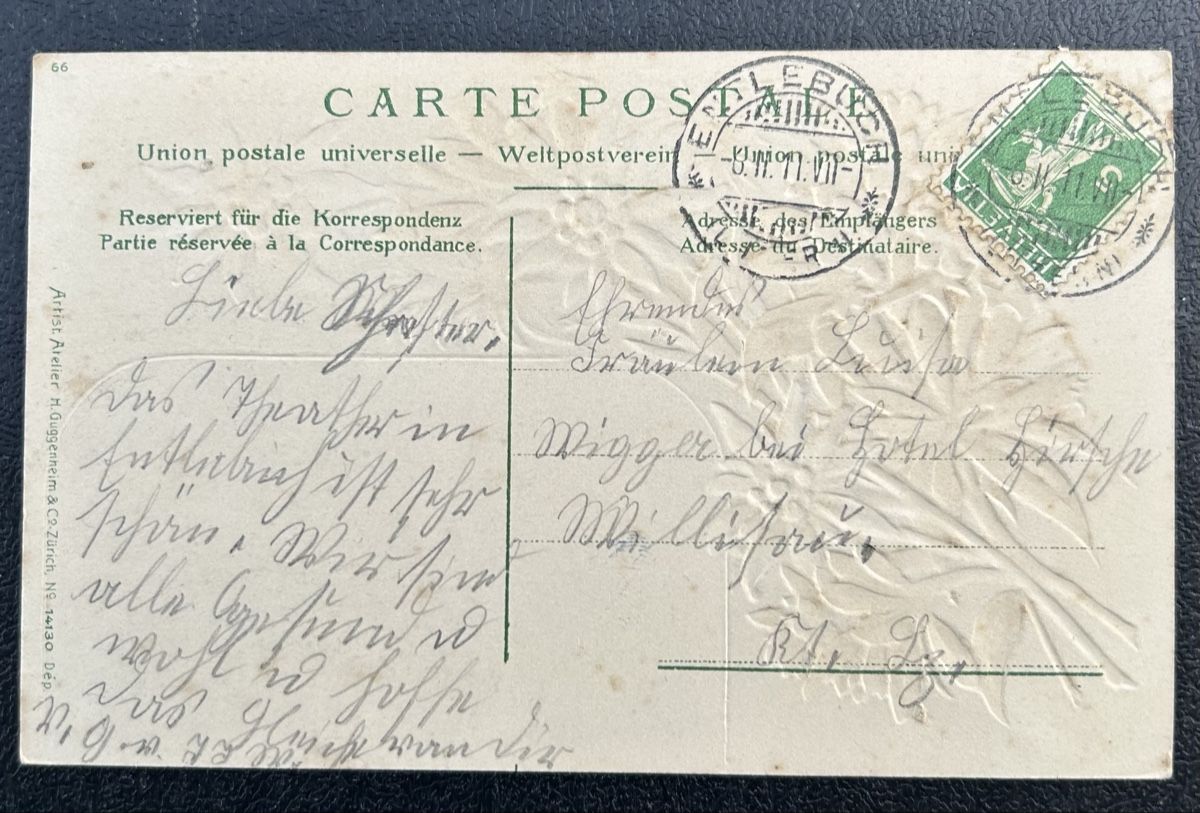 66
CARTE POSTALE
Union postale universelle — Weltpostverein — Union postale uni
Reserviert für die Korrespondenz
Partie réservée à la Correspondance.
Adresse des Empfängers
Adresse du Destinataire.
ENTLEBUCH
-8.II.11.VII-
HELVETIA
5
Artist. Atelier H. Guggenheim & Co. Zürich, No 14130 Dép.
Liebe Schwester.
Das Theather in
Entlebuch ist sehr
schön. Wir sind
alle Gesund u
wohl u hoffe
das Gleiche von dir
Fräulein Luisa
Wigger bei Hotel Hirsche
Willisau.
Kt. Lu.